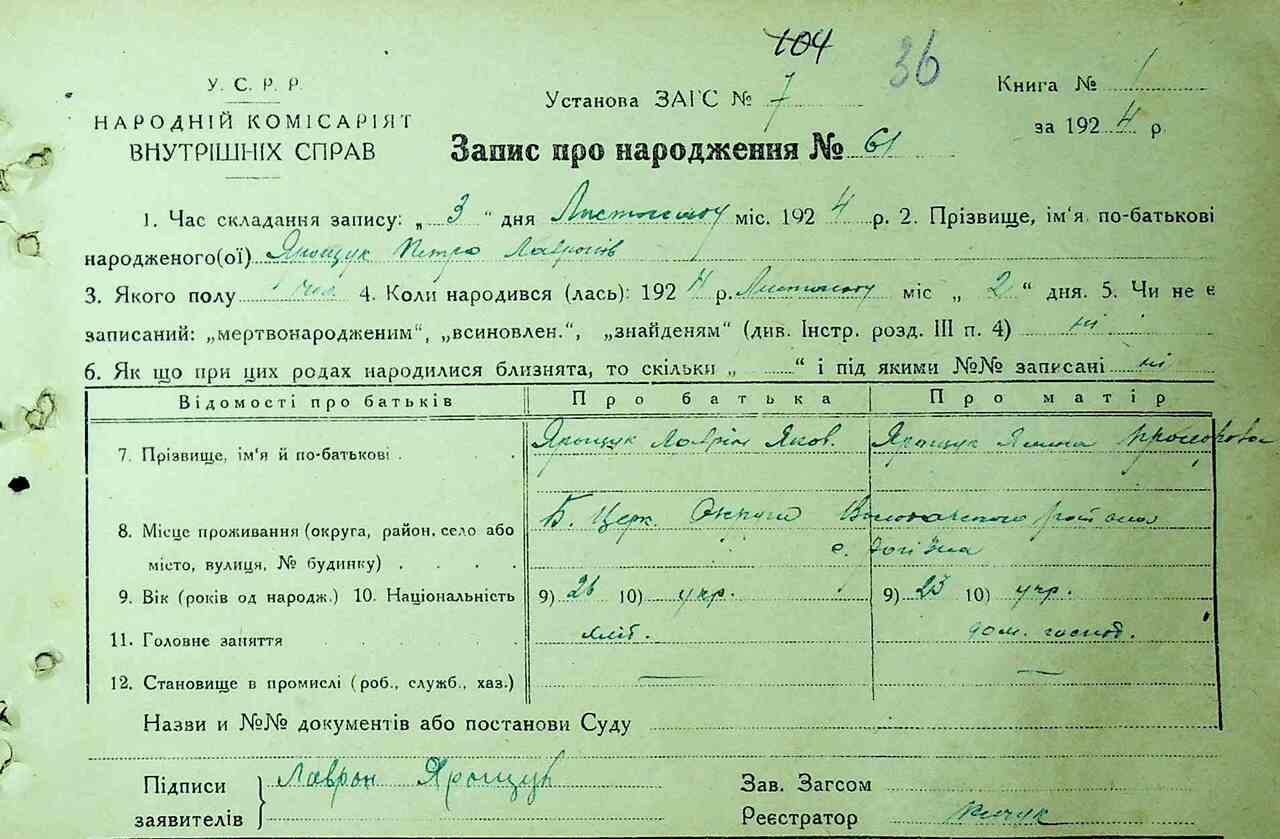 104 36
У. С. Р. Р.
НАРОДНІЙ КОМІСАРІЯТ
ВНУТРІШНІХ СПРАВ
Установа ЗАГС № 7
Книга № 1
за 1924 р.
Запис про народження № 61
1. Час складання запису: „ 3 “ дня Листопаду міс. 1924 р. 2. Прізвище, ім'я, по-батькові
народженого(ої) Ярощук Петро Лавронів
3. Якого полу чол. 4. Коли народився (лась): 1924 р. Листопаду міс „ 2 “ дня. 5. Чи не є
записаний: „мертвонародженим“, „всиновлен.“, „знайденям“ (див. Інстр. розд. III п. 4) ні
6. Як що при цих родах народилися близнята, то скільки „ “ і під якими №№ записані ні
Відомості про батьків Про батька Про матір
7. Прізвище, ім'я й по-батькові . . Ярощук Лаврін Яков. Ярощук
8. Місце проживання (округа, район, село або Б. Церк. Округи
місто, вулиця, № будинку) . . . . с.
9. Вік (років од народж.) 10. Національність 9) 26 10) укр. 9) 23 10) укр.
11. Головне заняття хліб. дом. господ.
12. Становище в промислі (роб., служб., хаз.) — —
Назви и №№ документів або постанови Суду
Підписи
заявителів
Лаврон Ярощук
Зав. Загсом
Реєстратор